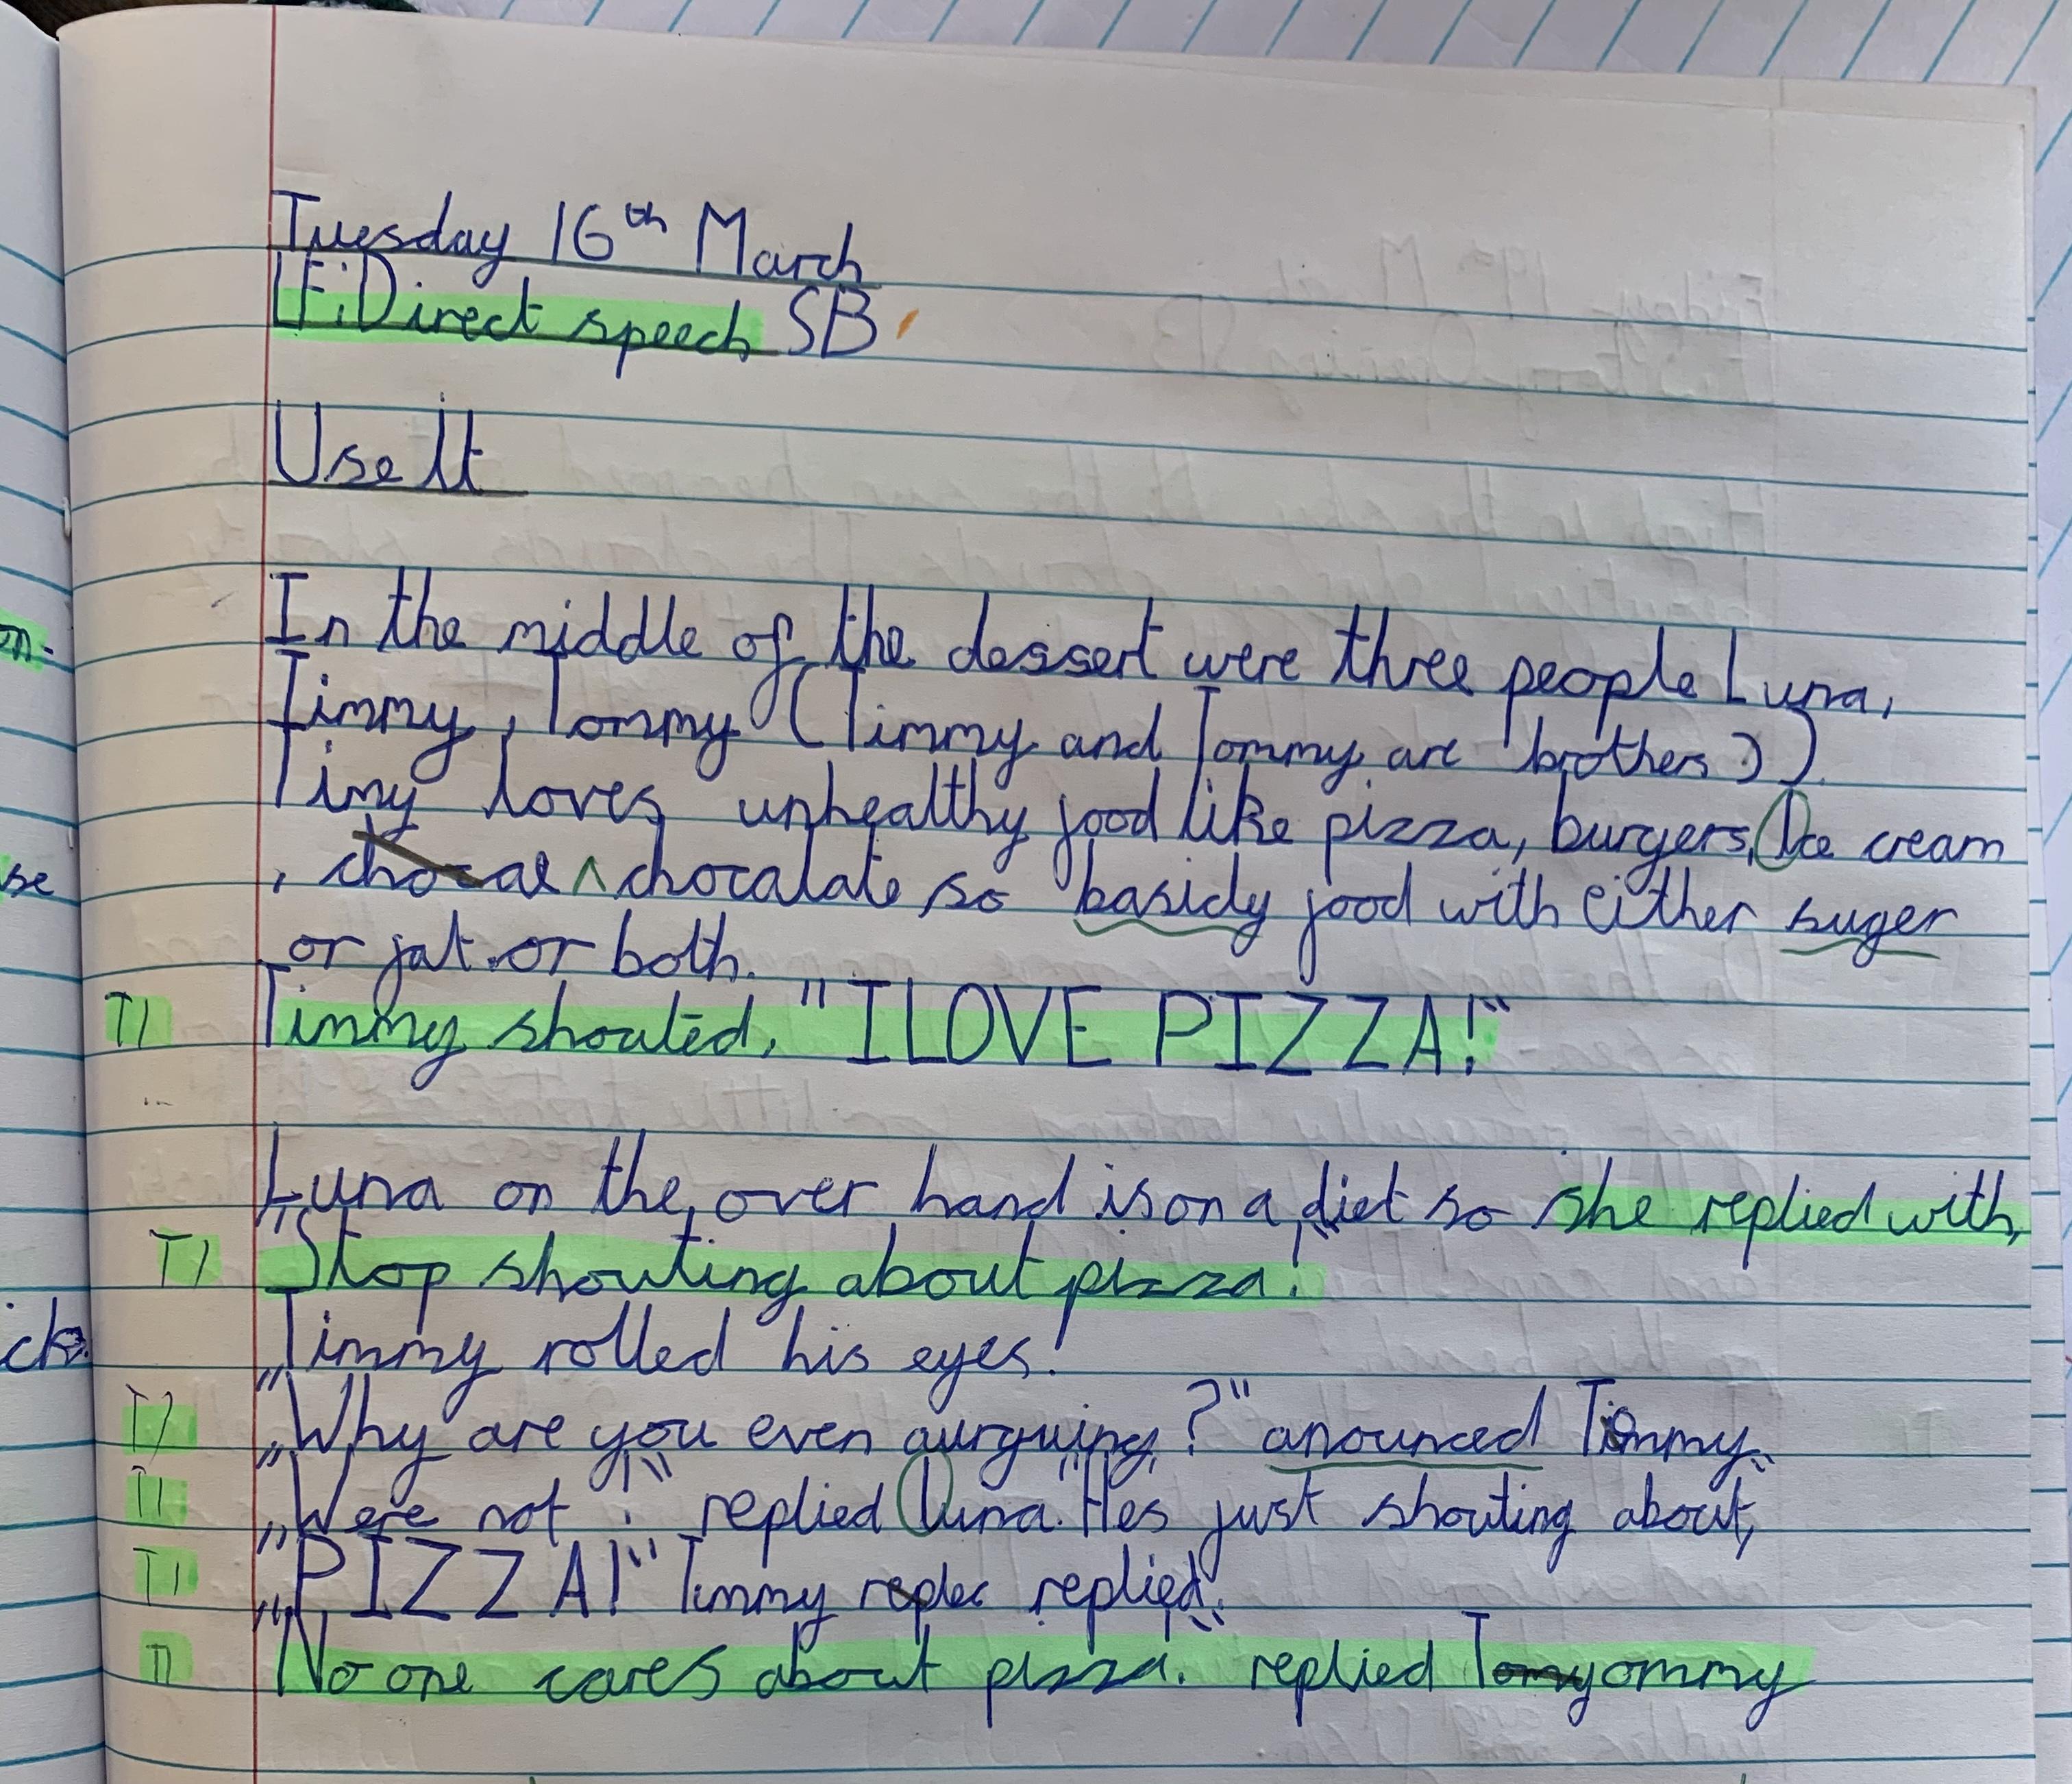 Tuesday 16th March
LF: Direct speech SB
Use It
In the middle of the dessert were three people Luna,
Timmy, Tommy (Timmy and Tommy are brothers:)).
Timy loves unhealthy food like pizza, burgers, Ice cream
, chocal ^ chocalate so basicly food with either suger
or fat or both.
T1 Timmy shouted, "I LOVE PIZZA!"
Luna on the over hand is on a diet so she replied with,
T1 "Stop shouting about pizza!"
Timmy rolled his eyes!
T2 "Why are you even aurguing?" anounced Tommy.
T1 "Were not!" replied Luna. "Hes just shouting about,"
T1 "PIZZA!" Timmy replec replied.
T1 "No one cares about pizza!" replied Tomyommy
on.
se
ck?